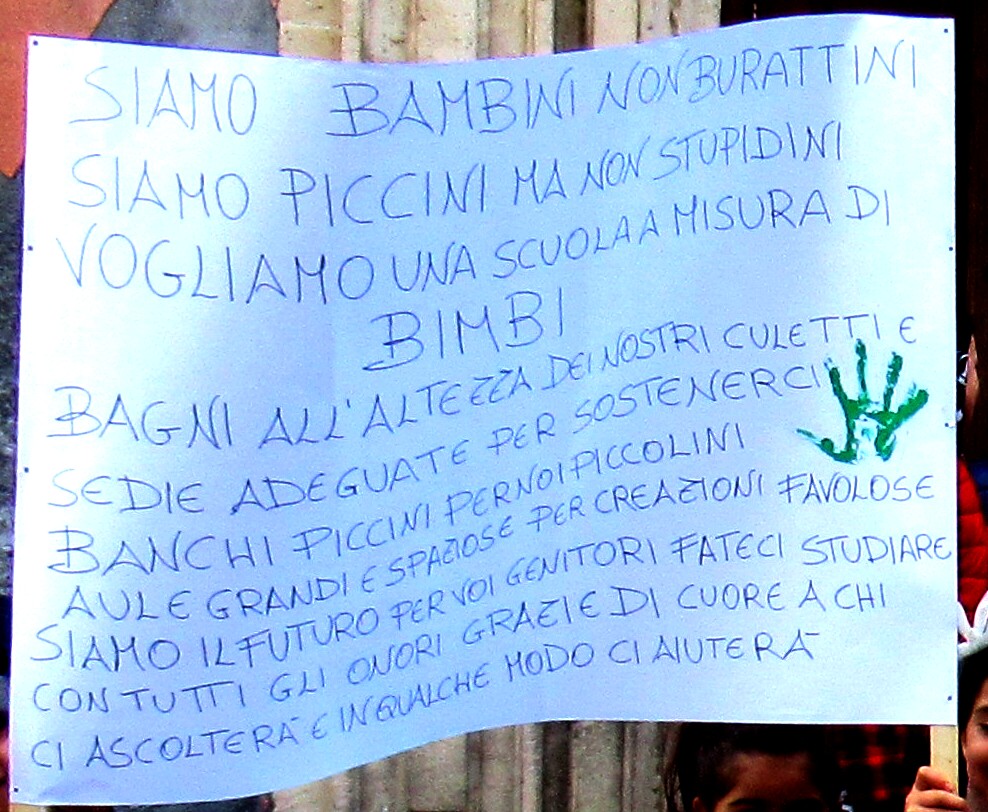 SIAMO BAMBINI NON BURATTINI
SIAMO PICCINI MA NON STUPIDINI
VOGLIAMO UNA SCUOLA A MISURA DI
BIMBI
BAGNI ALL'ALTEZZA DEI NOSTRI CULETTI E
SEDIE ADEGUATE PER SOSTENERCI
BANCHI PICCINI PER NOI PICCOLINI
AULE GRANDI E SPAZIOSE PER CREAZIONI FAVOLOSE
SIAMO IL FUTURO PER VOI GENITORI FATECI STUDIARE
CON TUTTI GLI ONORI GRAZIE DI CUORE A CHI
CI ASCOLTERÀ E IN QUALCHE MODO CI AIUTERÀ